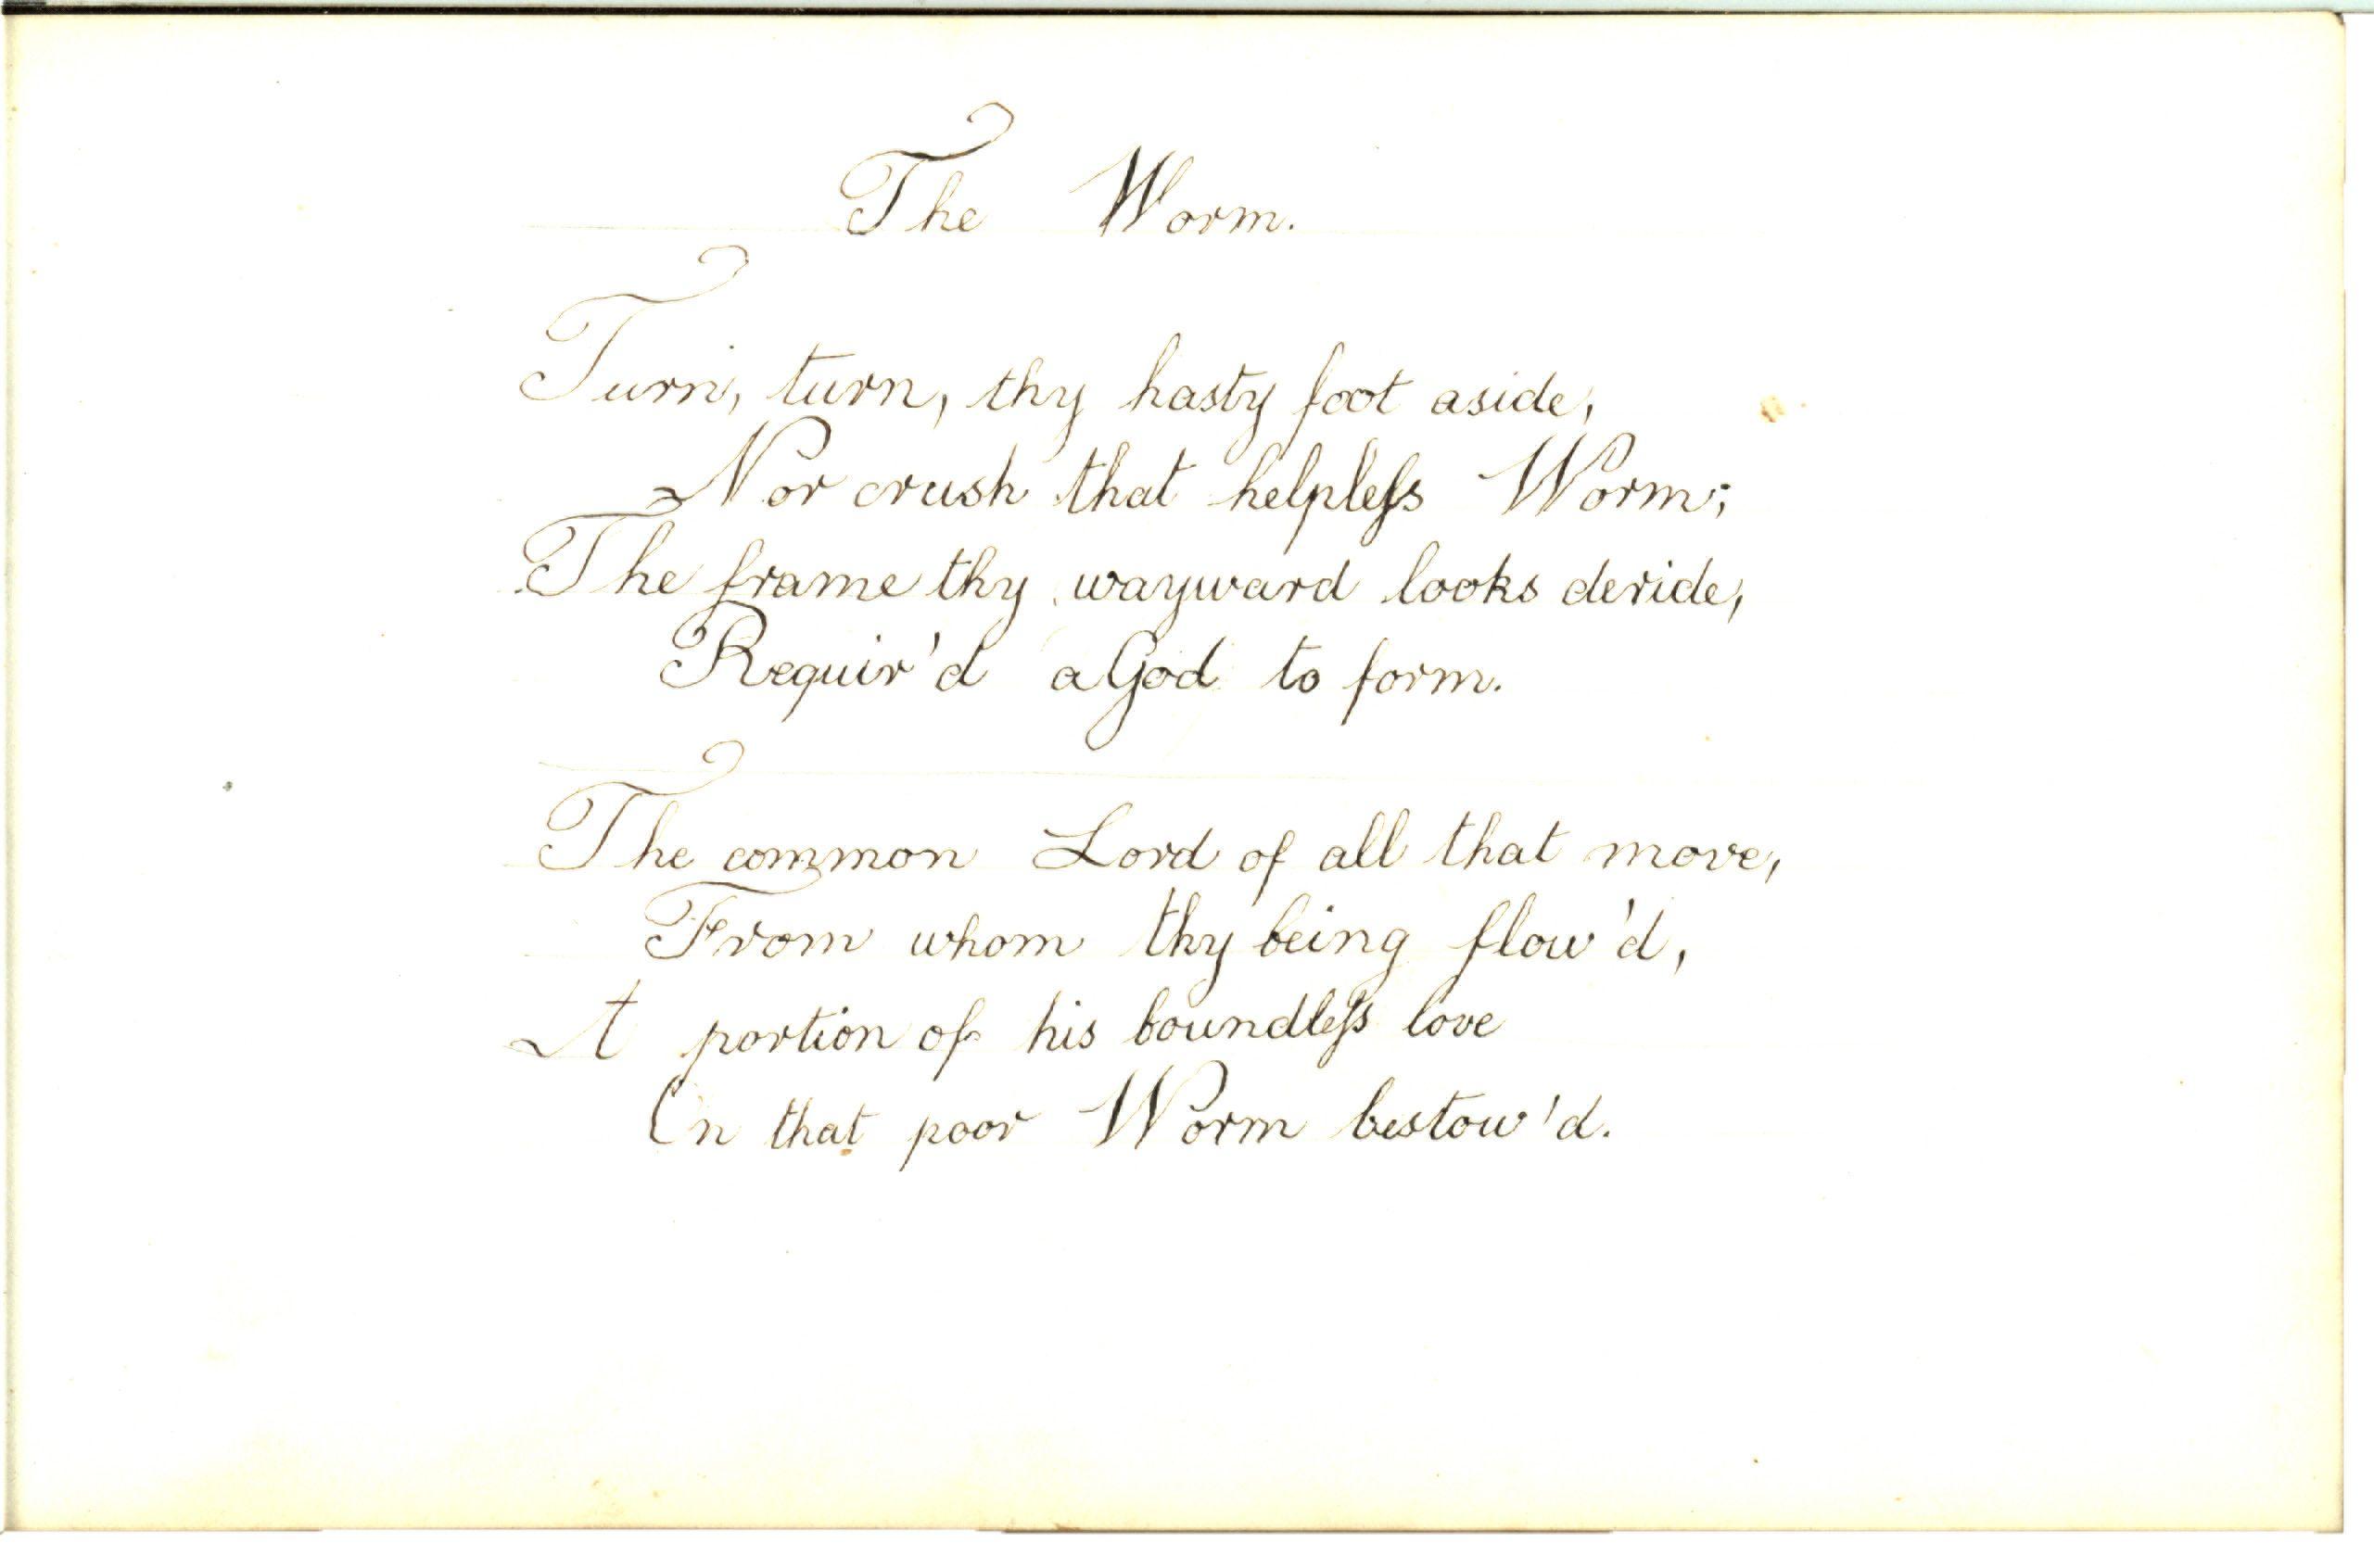 The Worm.
Turn, turn, thy hasty foot aside,
Nor crush that helpleſs Worm;
The frame thy wayward looks deride,
Requir'd a God to form.
The common Lord of all that move,
From whom thy being flow'd,
A portion of his boundleſs love
On that poor Worm bestow'd.